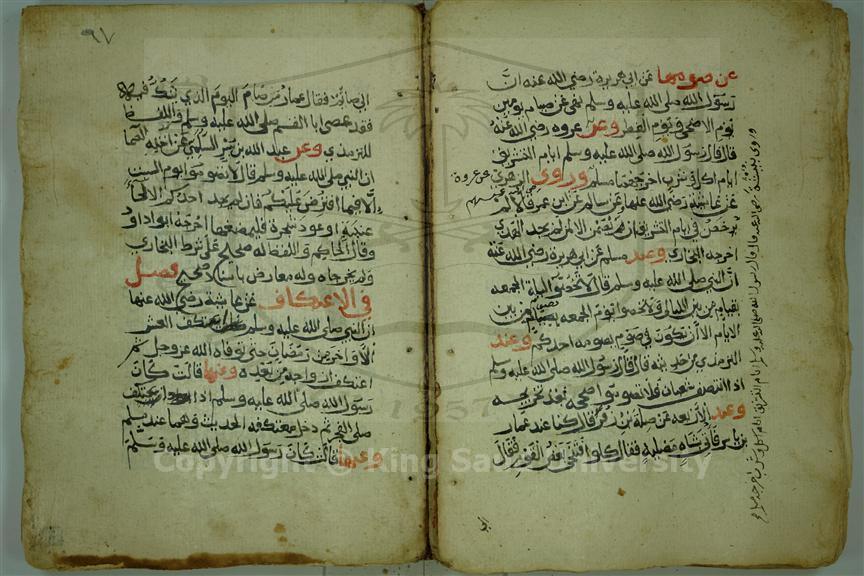 عن صومها عن ابي هريرة رضي الله عنه ان
رسول الله صلى الله عليه وسلم نهى عن صيام يومين
يوم الاضحى ويوم الفطر وعن عروه رضي الله عنه
قال قال رسول الله صلى الله عليه وسلم ايام التشريق
ايام اكل وشرب اخرجهما مسلم وروى الزهري عن عروة
عن عائشة رضي الله عنها وعن سالم عن ابن عمر قالا لم
يرخص في ايام التشريق ان يصمن الا لمن لم يجد الهدي
اخرجه البخاري وعند مسلم عن ابي هريرة رضي الله عنه
ان النبي صلى الله عليه وسلم قال لا تختصوا ليلة الجمعه
بقيام من بين الليالي ولا تخصوا يوم الجمعه بصيام من بين
الايام الا ان تكون في صوم يصومه احدكم وعند
الترمذي من حديثه قال قال رسول الله صلى الله عليه وسلم
اذا انتصف شعبان فلا تصوموا صححه بعد تخريجه
وعند الاربعه عن صلة بن زفر قال كنا عند عمار
بن ياسر فاتي بشاة مصلية فقال كلوا فتنحى بعض القوم فقال
٩٧
اني صائم فقال عمار من صام اليوم الذي يشك فيه
فقد عصى ابا القسم صلى الله عليه وسلم واللفظ
للترمذي وعن عبد الله بن بسر السلمي عن اخته الصما
ان النبي صلى الله عليه وسلم قال لا تصوموا يوم السبت
الا فيما افترض عليكم فان لم يجد احدكم الا لحا
عنبة او عود شجرة فليمضغها اخرجه ابو داود
وقال الحاكم واللفظ له صحيح على شرط البخاري
ولم يخرجاه وله معارض باسناد صحيح فصل
في الاعتكاف عن عائشة رضي الله عنها
ان النبي صلى الله عليه وسلم كان يعتكف العشر
الاواخر من رمضان حتى توفاه الله عز وجل ثم
اعتكف ازواجه من بعده وعنها قالت كان
رسول الله صلى الله عليه وسلم اذا اراد ان يعتكف
صلى الفجر ثم دخل معتكفه الحديث وهما عند مسلم
وعنها قالت كان رسول الله صلى الله عليه وسلم
1957
Copyright © King Saud University